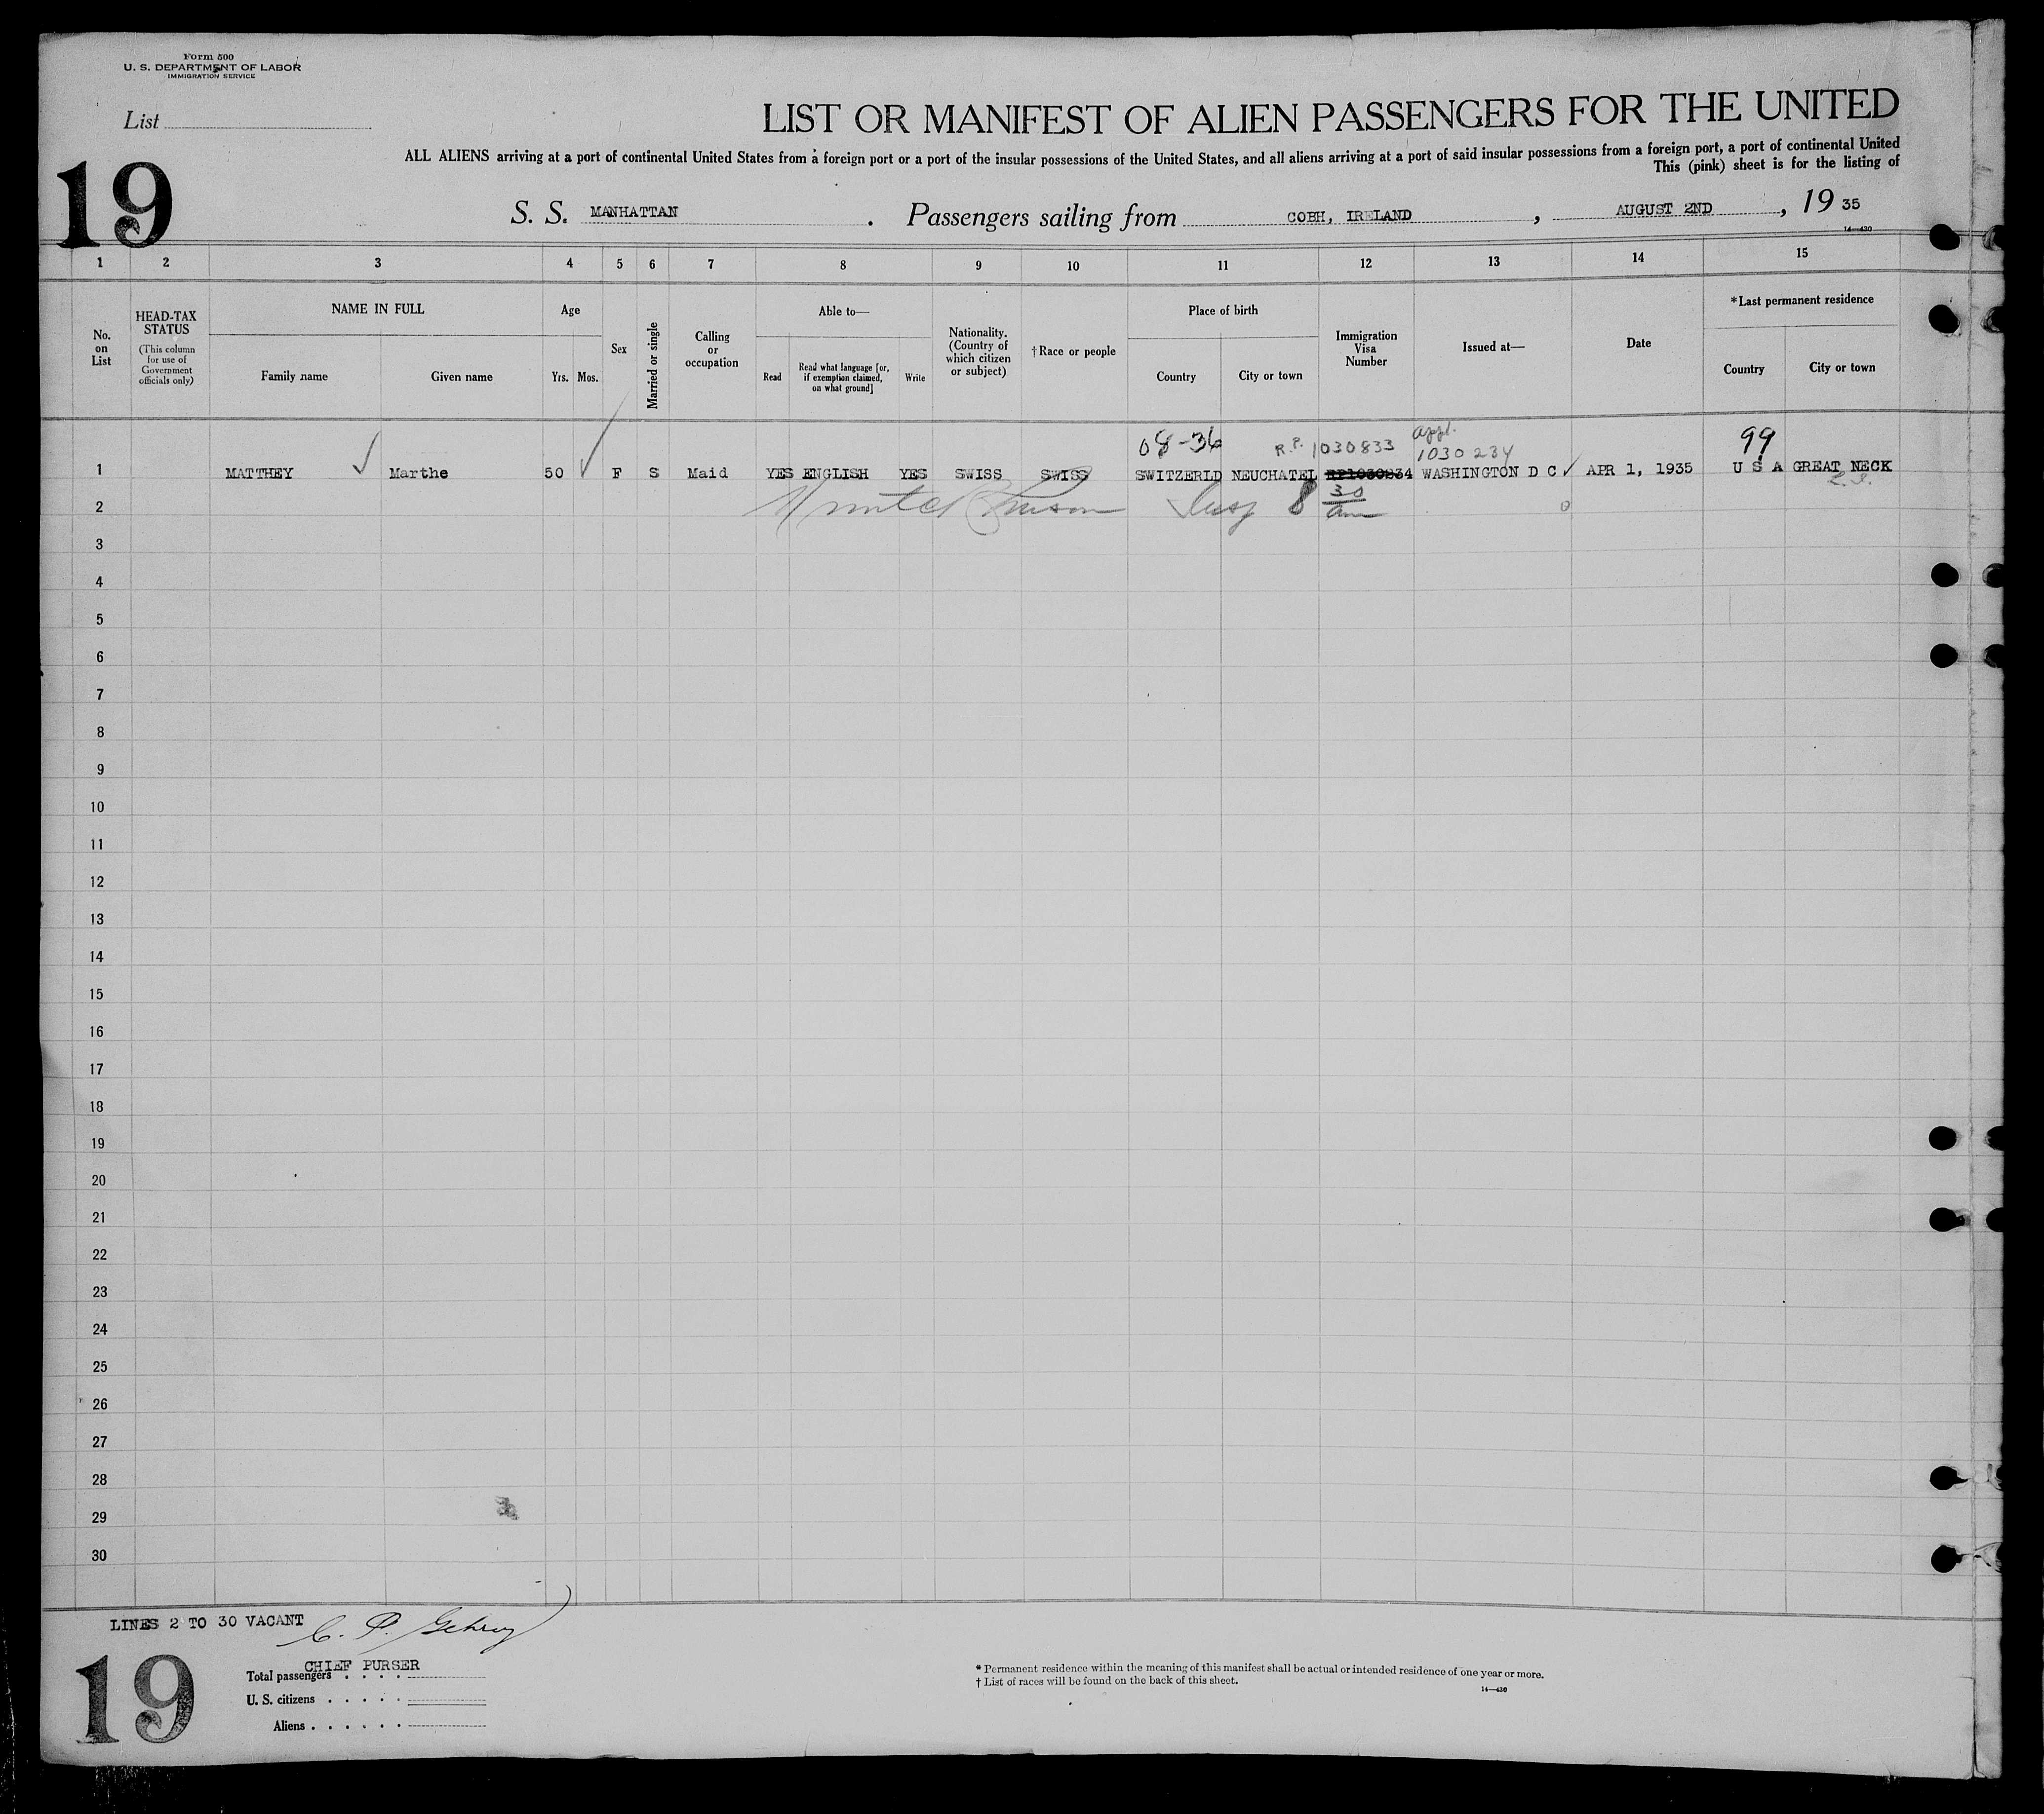 Form 500
U. S. DEPARTMENT OF LABOR
IMMIGRATION SERVICE
List
19
LIST OR MANIFEST OF ALIEN PASSENGERS FOR THE UNITED
ALL ALIENS arriving at a port of continental United States from a foreign port or a port of the insular possessions of the United States, and all aliens arriving at a port of said insular possessions from a foreign port, a port of continental United
This (pink) sheet is for the listing of
S. S. MANHATTAN . Passengers sailing from COBH, IRELAND , AUGUST 2ND , 19 35
14—430
1 2 3 4 5 6 7 8 9 10 11 12 13 14 15
No. on List
HEAD-TAX STATUS
(This column for use of Government officials only)
NAME IN FULL
Family name
Given name
Age
Yrs. Mos.
Sex
Married or single
Calling or occupation
Able to—
Read
Read what language [or, if exemption claimed, on what ground]
Write
Nationality. (Country of which citizen or subject)
†Race or people
Place of birth
Country
City or town
Immigration Visa Number
Issued at—
Date
*Last permanent residence
Country
City or town
08-36 R.P. 1030833 appl. 1030234 99
1 MATTHEY Marthe 50 F S Maid YES ENGLISH YES SWISS SWISS SWITZERLD NEUCHATEL RP1030234 WASHINGTON D C APR 1, 1935 U S A GREAT NECK
L.I.
2 Aug 8 30 am
3
4
5
6
7
8
9
10
11
12
13
14
15
16
17
18
19
20
21
22
23
24
25
26
27
28
29
30
LINES 2 TO 30 VACANT
CHIEF PURSER
19
Total passengers
U. S. citizens
Aliens
* Permanent residence within the meaning of this manifest shall be actual or intended residence of one year or more.
† List of races will be found on the back of this sheet.
14—430